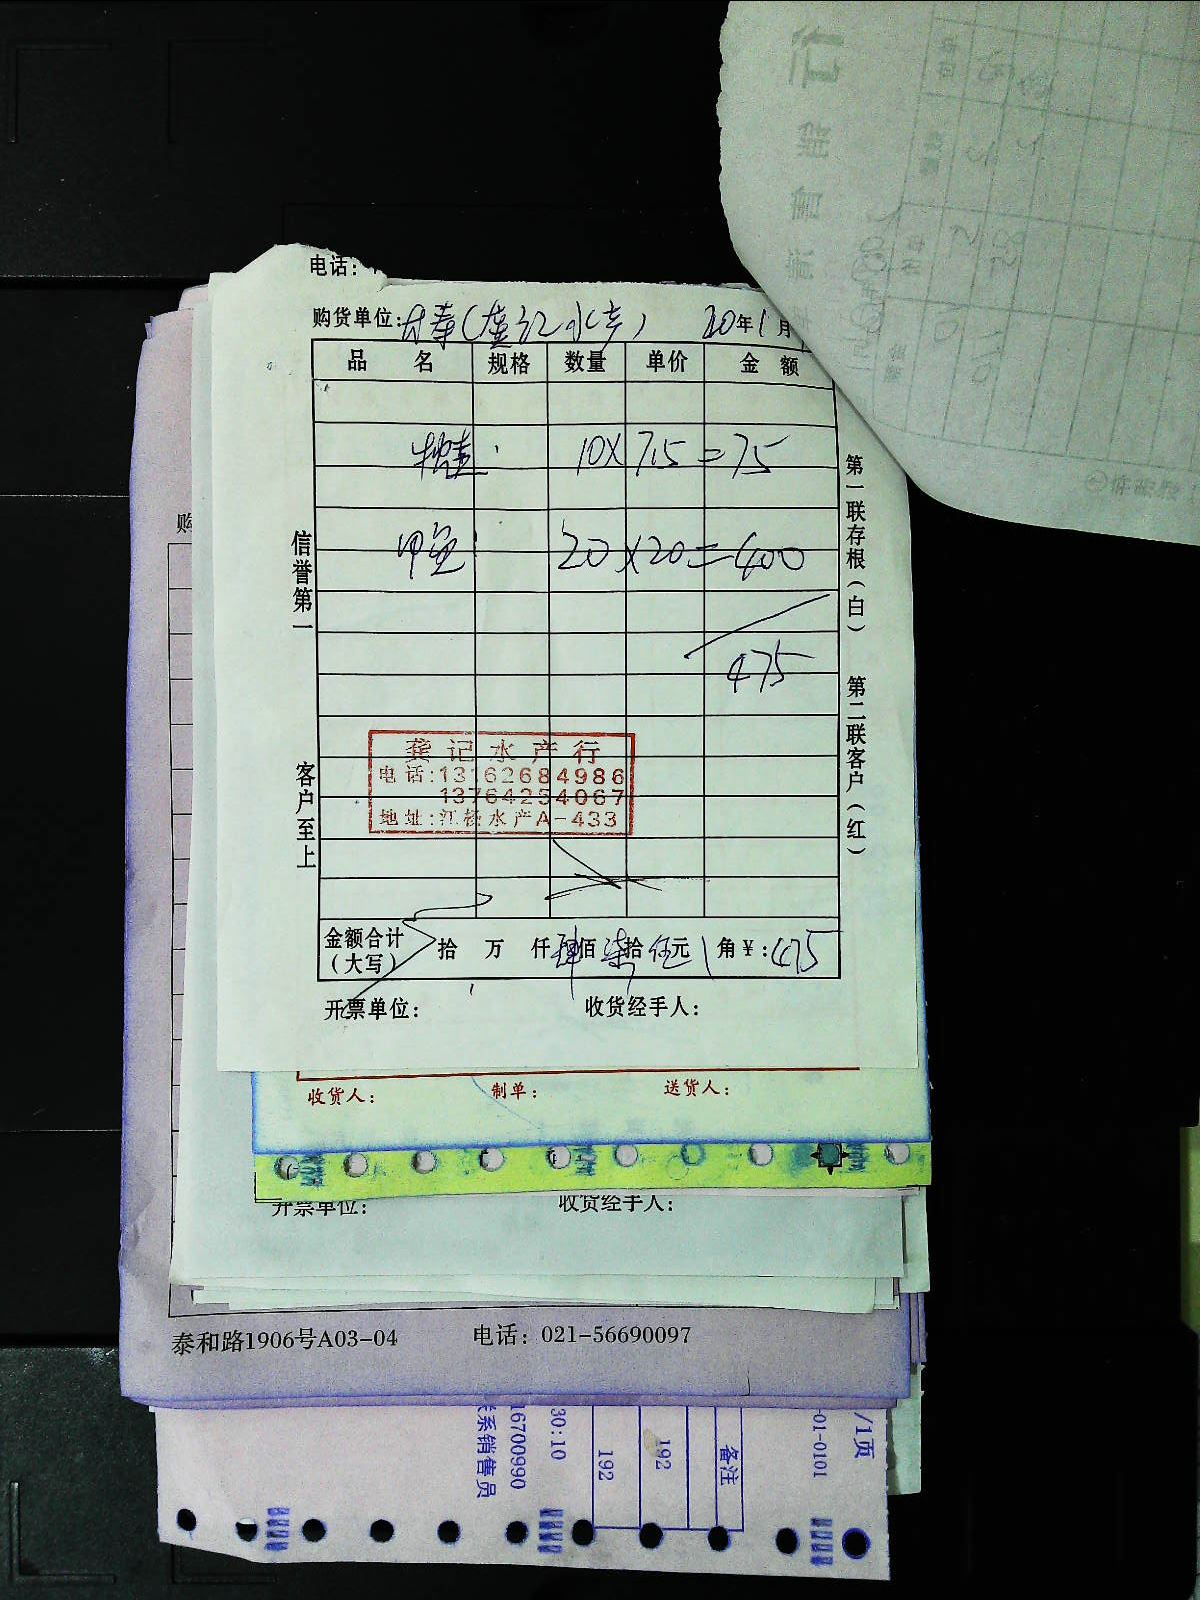 电话:
购货单位: 20年1月
品 名 规格 数量 单价 金 额
10×7.5=75
甲鱼 20×20=400
475
信誉第一
客户至上
第一联存根(白) 第二联客户(红)
龚记水产行
电话:13162684986
13764254067
地址:江杨水产A-433
金额合计(大写) 拾 万 仟肆佰柒拾伍元 角¥:475
开票单位: 收货经手人:
收货人: 制单: 送货人:
开票单位: 收货经手人:
购
泰和路1906号A03-04 电话: 021-56690097
/1页
-01-0101
备注
192
192
30:10
16700990
联系销售员